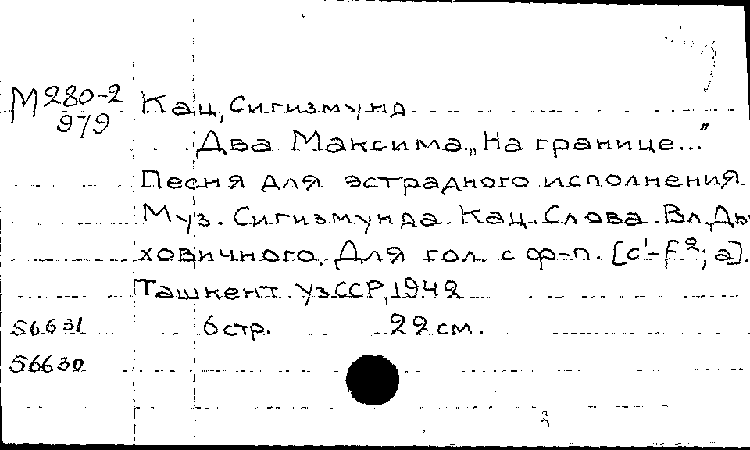 М280-2 Кац, Сигизмунд
979
Два Максима „На границе..."
Песня для эстрадного исполнения
Муз. Сигизмунда Кац. Слова Вл. Ды-
ховичного. Для гол. с ф-п. [c¹-f²; a].
Ташкент УзССР, 1942
56631 6 стр. 22 см.
56630